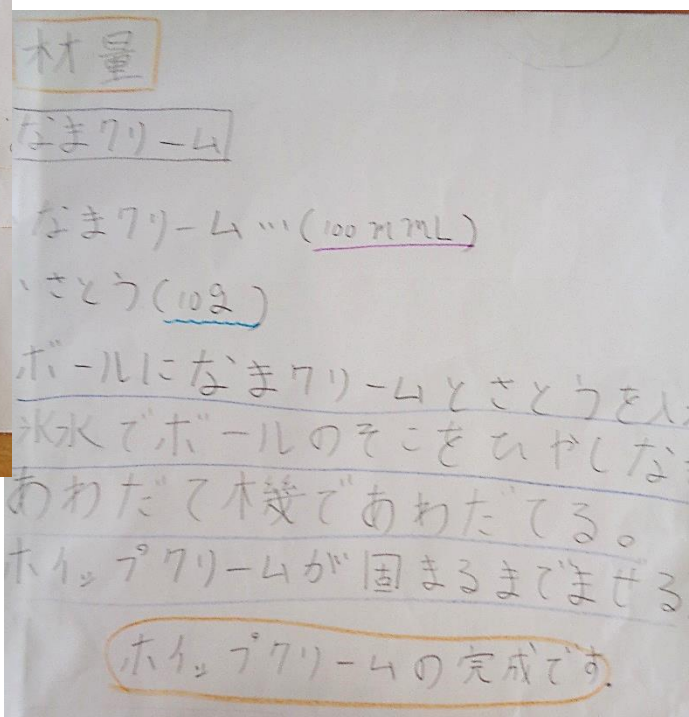 材量
なまクリーム
なまクリーム…(100mmL)
、さとう(10g)
ボールになまクリームとさとうを入
氷水でボールのそこをひやしな
あわだて機であわだてる。
ホイップクリームが固まるまでまぜる
ホイップクリームの完成です.